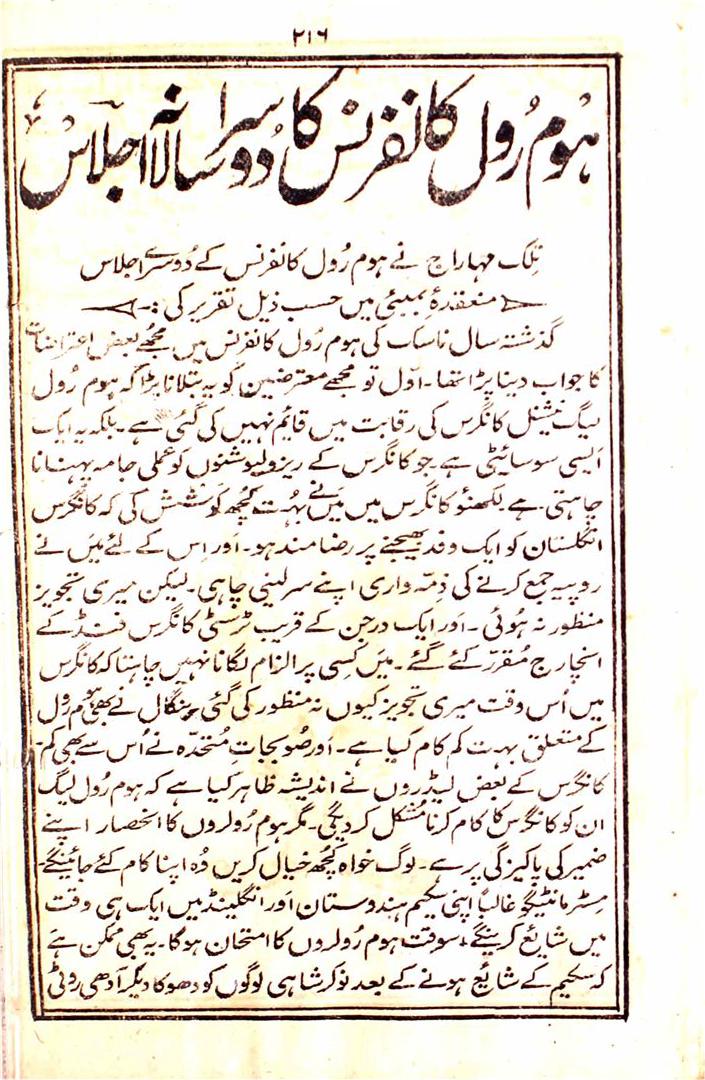 ۲۱۶
ہوم رُول کانفرنس کا دُوسرا سالانہ اجلاس
تِلک مہاراج نے ہوم رُول کانفرنس کے دُوسرے اجلاس
منعقدۂ بمبئی میں حسب ذیل تقریر کی :-
گذشتہ سال ناسک کی ہوم رُول کانفرنس میں مجُھے بعض اعتراضات
کا جواب دینا پڑا تھا۔ اوّل تو مجھے معترضین کو یہ بتلانا پڑا کہ ہوم رُول
لیگ نیشنل کانگرس کی رقابت میں قائم نہیں کی گئی ہے۔ بلکہ یہ ایک
ایسی سوسائیٹی ہے۔ جو کانگرس کے ریزولیوشنوں کو عملی جامہ پہنانا
چاہتی ہے۔ لکھنؤ کانگرس میں مَیں نے بہُت کچُھ کوشش کی کہ کانگرس
انگلستان کو ایک وفد بھیجنے پر رضامند ہو۔ اَور اِس کے لئے مَیں نے
روپیہ جمع کرنے کی ذِمّہ واری اپنے سر لینی چاہی۔ لیکن میری تجویز
منظور نہ ہُوئی۔ اَور ایک درجن کے قریب ٹرسٹی کانگرس فنڈ کے
انچارج مُقررّ کئے گئے۔ مَیں کِسی پر الزام لگانا نہیں چاہتا کہ کانگرس
میں اُس وقت میری تجویز کیوں نہ منظور کی گئی، بنگال نے بھی ہوم رول
کے متعلق بہت کم کام کیا ہے۔ اَور صُوبجاتِ مُتحدّہ نے اُس سے بھی کم۔
کانگرس کے بعض لیڈروں نے اندیشہ ظاہر کیا ہے کہ ہوم رُول لیگ
ان کو کانگرس کا کام کرنا مُشکل کر دیگی۔ مگر ہوم رُولروں کا انحصار اپنے
ضمیر کی پاکیزگی پر ہے۔ لوگ خواہ کچُھ خیال کریں وُہ اپنا کام کئے جائینگے۔
مِسٹر مانٹیگو غالباً اپنی سکیم ہندوستان اَور انگلینڈ میں ایک ہی وقت
میں شایع کرینگے، سوقت ہوم رُولروں کا امتحان ہوگا۔ یہ بھی ممکن ہے
کہ سکیم کے شایع ہونے کے بعد نوکر شاہی لوگوں کو دھوکا دیکر آدھی روٹی